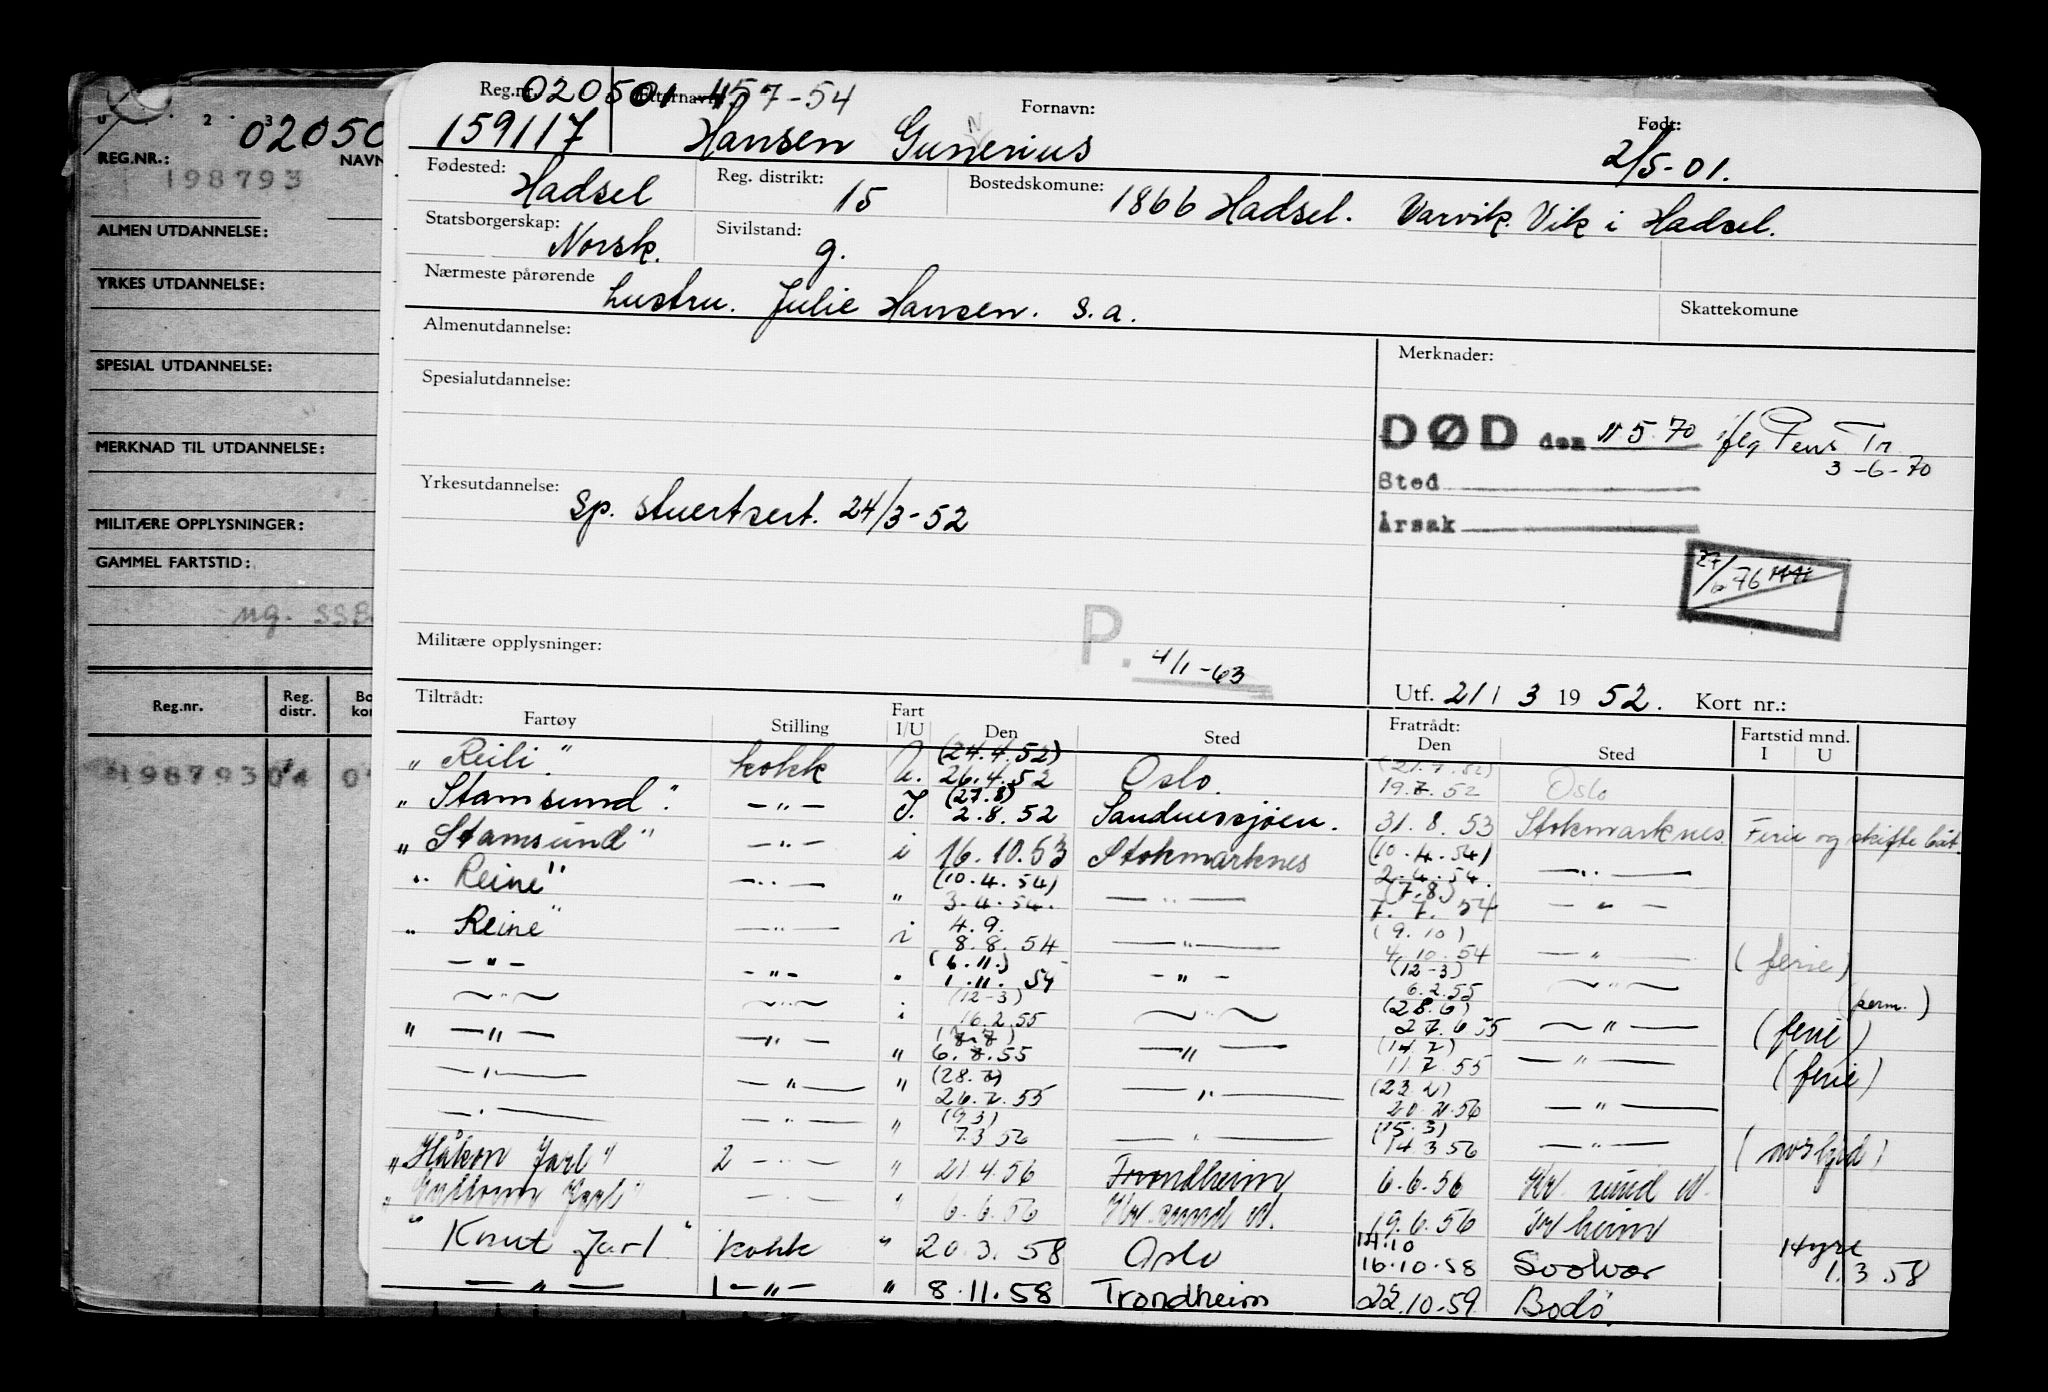 020501 457-54
Reg.nr. Etternavn: Fornavn: Født:
159117 Hansen Gunnerius 2/5-01.
Fødested: Hadsel Reg. distrikt: 15 Bostedskomune: 1866 Hadsel. Varvik. Vik i Hadsel.
Statsborgerskap: Norsk. Sivilstand: g.
Nærmeste pårørende hustru. Julie Hansen. s.a. Skattekomune
Almenutdannelse: Merknader:
Spesialutdannelse:
DØD den 11 5.70 iflg Pens Tr
3-6-70
Sted
Årsak
Yrkesutdannelse: Sp. stuertsert. 24/3-52
27/6 76
Militære opplysninger: P. 4/1-63
Utf. 21 / 3 1952. Kort nr.:
Tiltrådt: Fratrådt: Fartstid mnd.
Fartøy Stilling Fart I/U Den Sted Den Sted I U
(24.4.52) (21.7.52)
"Reili" kokk U. 26.4.52 Oslo. 19.7.52 Oslo
(27.8)
"Stamsund" — " — I. 2.8.52 Sandnessjøen. 31.8.53 Stokmarknes. Ferie og skifte båt.
(10.4.54)
"Stamsund" — " — i 16.10.53 Stokmarknes 2.4.54. — " —
(10.4.54) (7.8)
"Reine" — " — " 3.4.54. — " — 7.7.54 — " —
4.9. (9.10)
"Reine" — " — i 8.8.54 — " — 4.10.54 — " — (ferie)
(6.11.) (12-3)
— " — — " — " 1.11.54 — " — 6.2.55 — " — (perm.)
(12-3) (28.6)
— " — — " — i 16.2.55 — " — 27.6.55 — " — (ferie)
(8.7) (14.7)
" — " — — " — " 6.7.55 — " — 11.7.55 — " — (ferie)
(28.7) (23.2)
— " — — " — " 26.7.55 — " — 20.2.56 — " —
(9.3) (15.3)
— " — — " — " 7.3.56 — " — 14.3.56 — " —
"Håkon Jarl" 2 — " — " 21.4.56 Trondheim 6.6.56 Kr. sund N.
Jarl" — " — " 6.6.56 Kr. sund N. 19.6.56 Tr heim
14.10
"Knut Jarl" kokk " 20.3.58 Oslo 16.10.58 Svolvær Hyre 1.3.58
— " — 1 — " — " 8.11.58 Trondheim 22.10.59 Bodø.
02050
REG.NR.: NAVN
198793
ALMEN UTDANNELSE:
YRKES UTDANNELSE:
SPESIAL UTDANNELSE:
MERKNAD TIL UTDANNELSE:
MILITÆRE OPPLYSNINGER:
GAMMEL FARTSTID:
Reg.nr. Reg. distr. Bo kom
198793